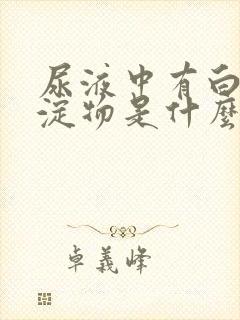 尿液中有白
淀物是什麼
卓義峰